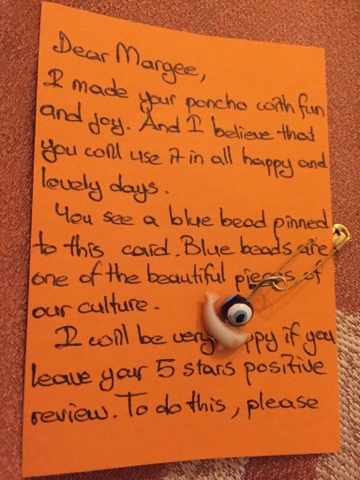 Dear Margee,
I made your poncho with fun
and joy. And I believe that
you will use it in all happy and
lovely days.
You see a blue bead pinned
to this card. Blue beads are
one of the beautiful pieces of
our culture.
I will be very happy if you
leave your 5 stars positive
review. To do this, please